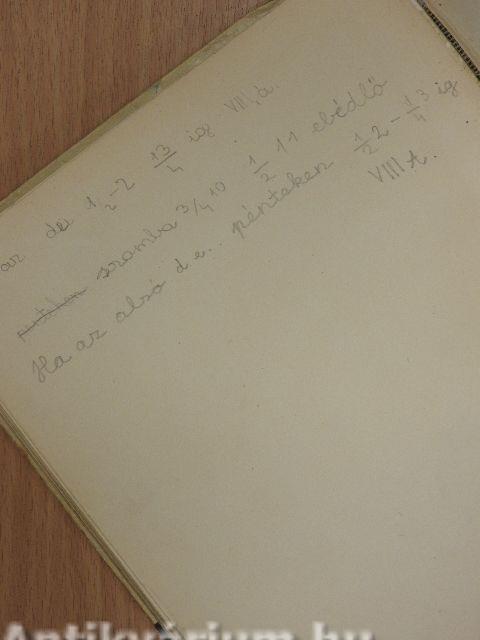 az de 1/2 2 13/4 ig VIII.A.
szomba 3/4 10 1/2 11 ebédlő
Ha az alsó d.e.. pénteken 1/2 2 - 1/4 3 ig
VIII A.
Antikvárium.hu